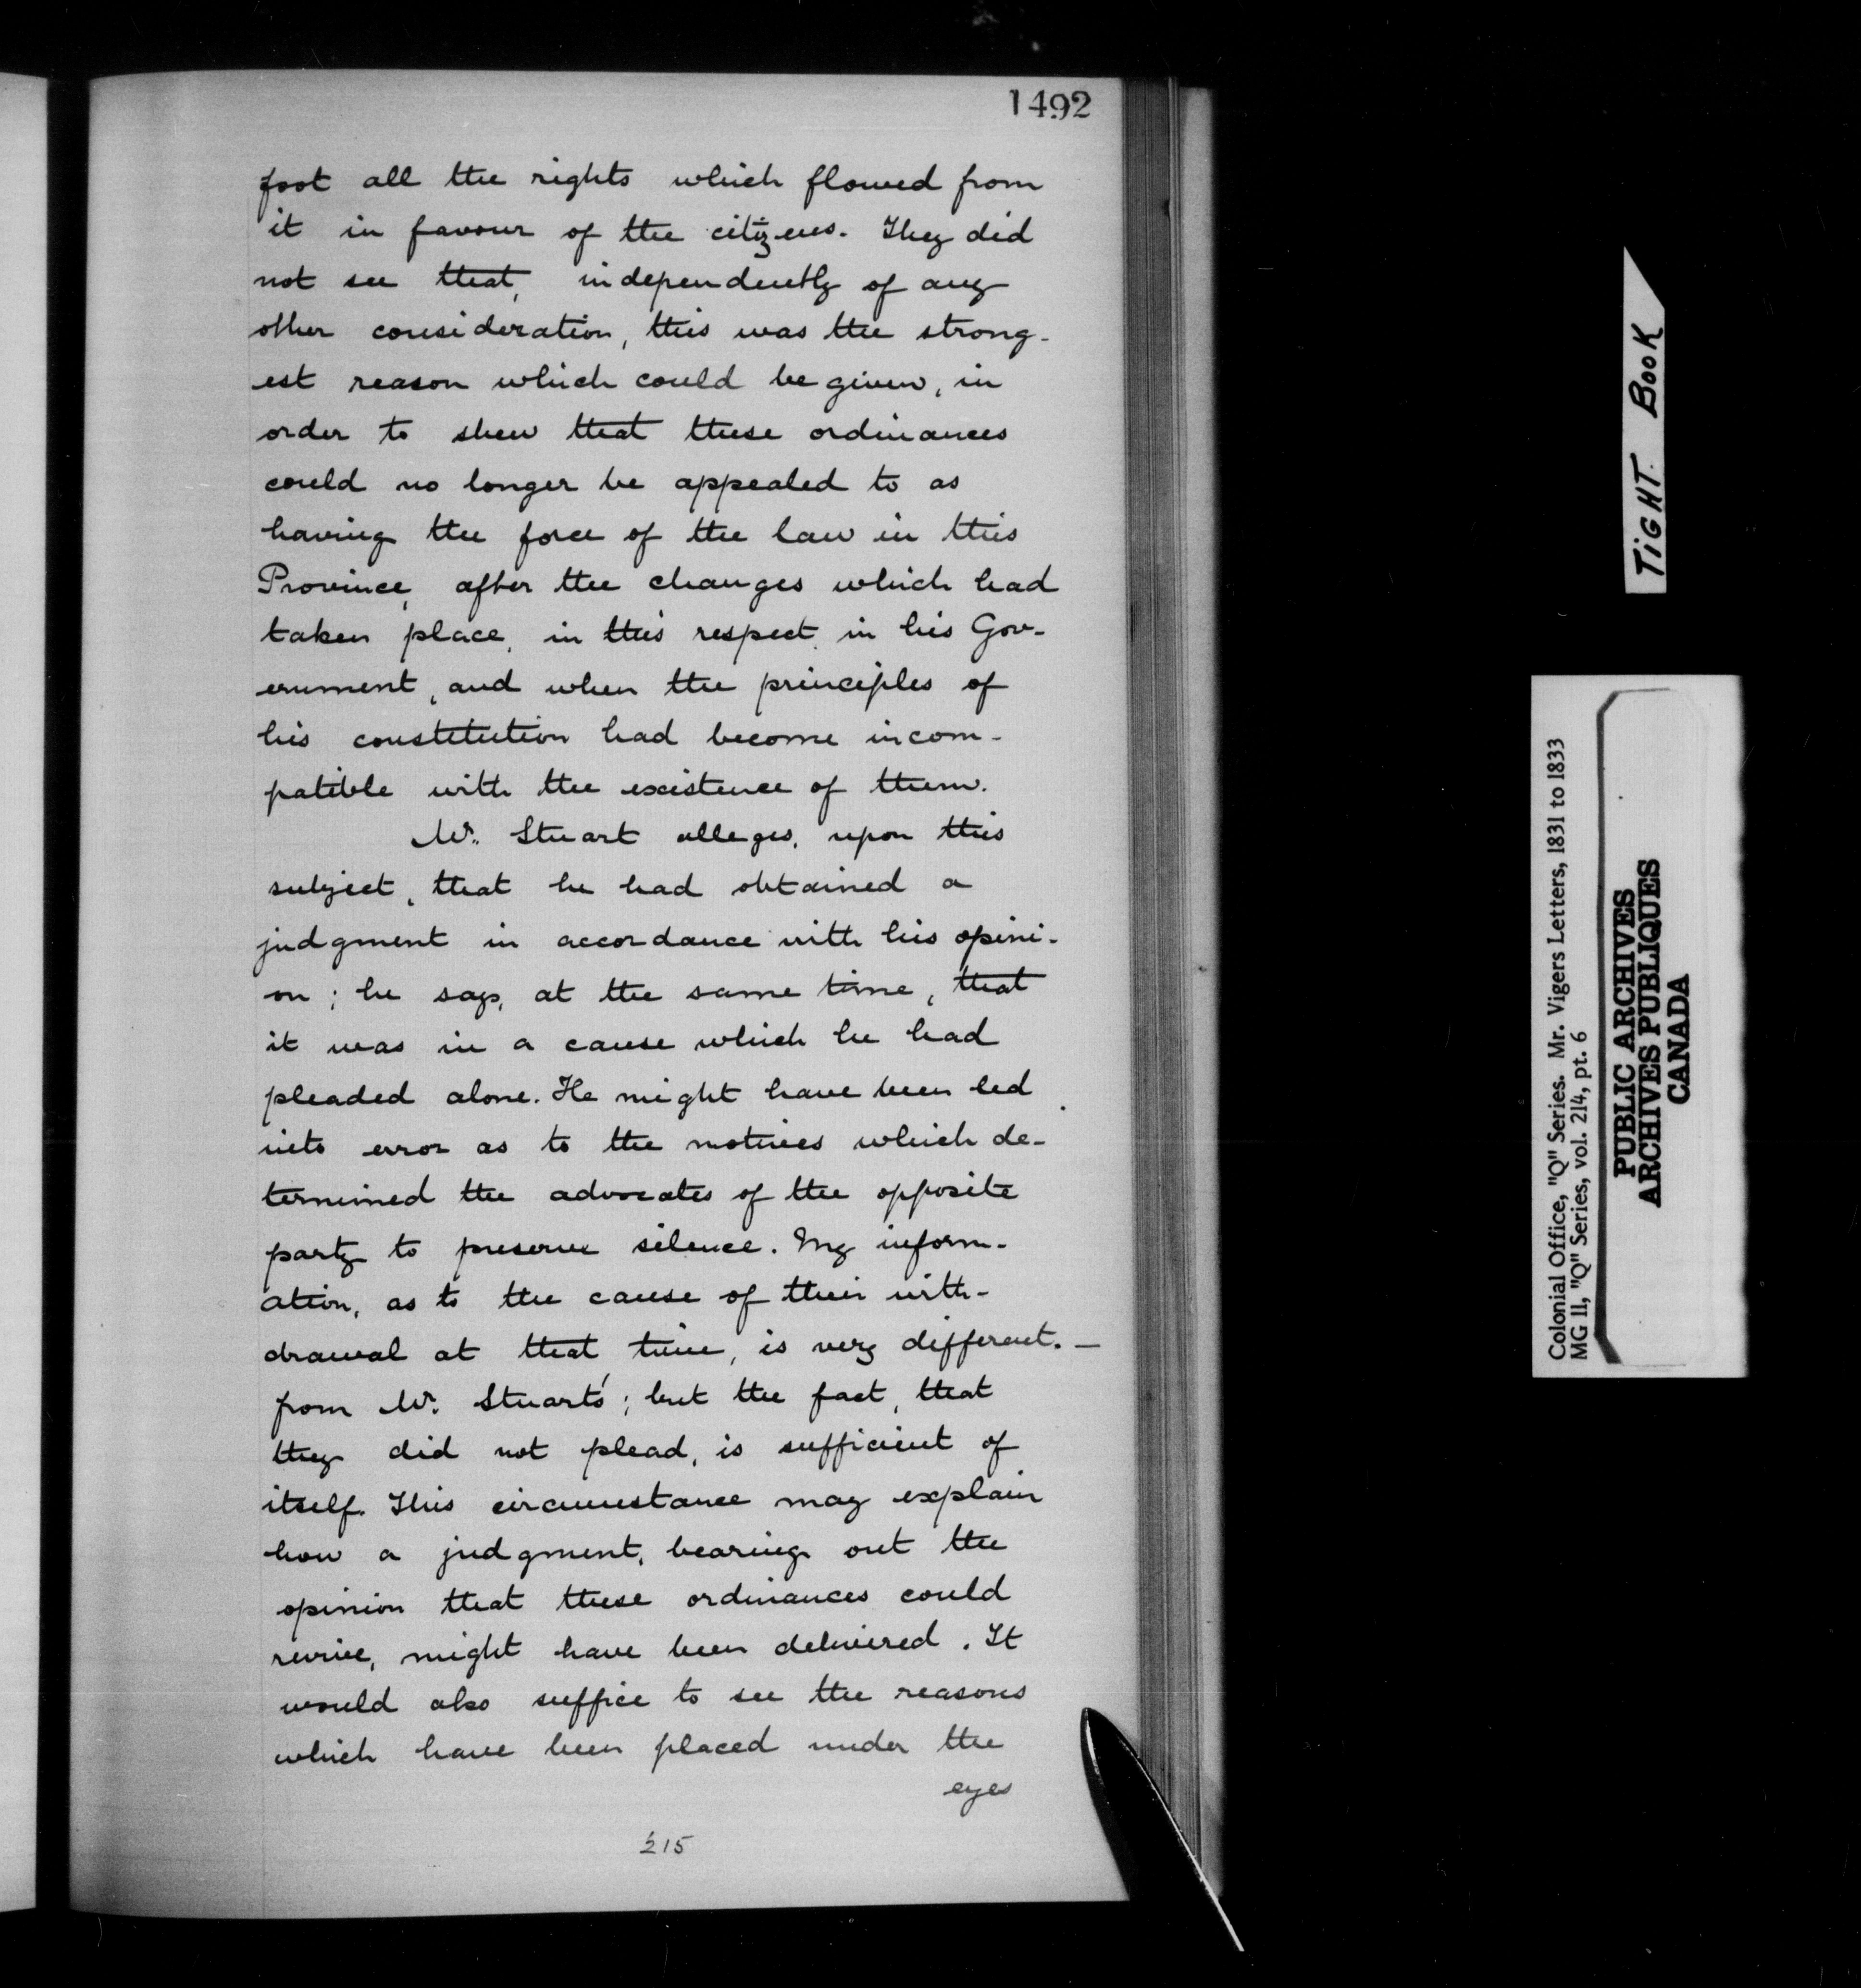 1492
foot all the rights which flowed from
it in favour of the citizens. They did
not see that, independently of any
other consideration, this was the strong-
est reason which could be given, in
order to shew that these ordinances
could no longer be appealed to as
having the force of the law in this
Province, after the changes which had
taken place, in this respect, in his Gov-
ernment, and when the principles of
his constitution had become incom-
patible with the existence of them.
Mr. Stuart alleges, upon this
subject, that he had obtained a
judgment in accordance with his opini-
on; he says, at the same time, that
it was in a cause which he had
pleaded alone. He might have been led
into error as to the motives which de-
termined the advocates of the opposite
party to preserve silence. My inform-
ation, as to the cause of their with-
drawal at that time, is very different. —
from Mr. Stuart's; but the fact, that
they did not plead, is sufficient of
itself. This circumstance may explain
how a judgment, bearing out the
opinion that these ordinances could
revive, might have been delivered. It
would also suffice to see the reasons
which have been placed under the
eyes
215
TIGHT BOOK
Colonial Office, "Q" Series. Mr. Vigers Letters, 1831 to 1833
MG 11, "Q" Series, vol. 214, pt. 6
PUBLIC ARCHIVES
ARCHIVES PUBLIQUES
CANADA